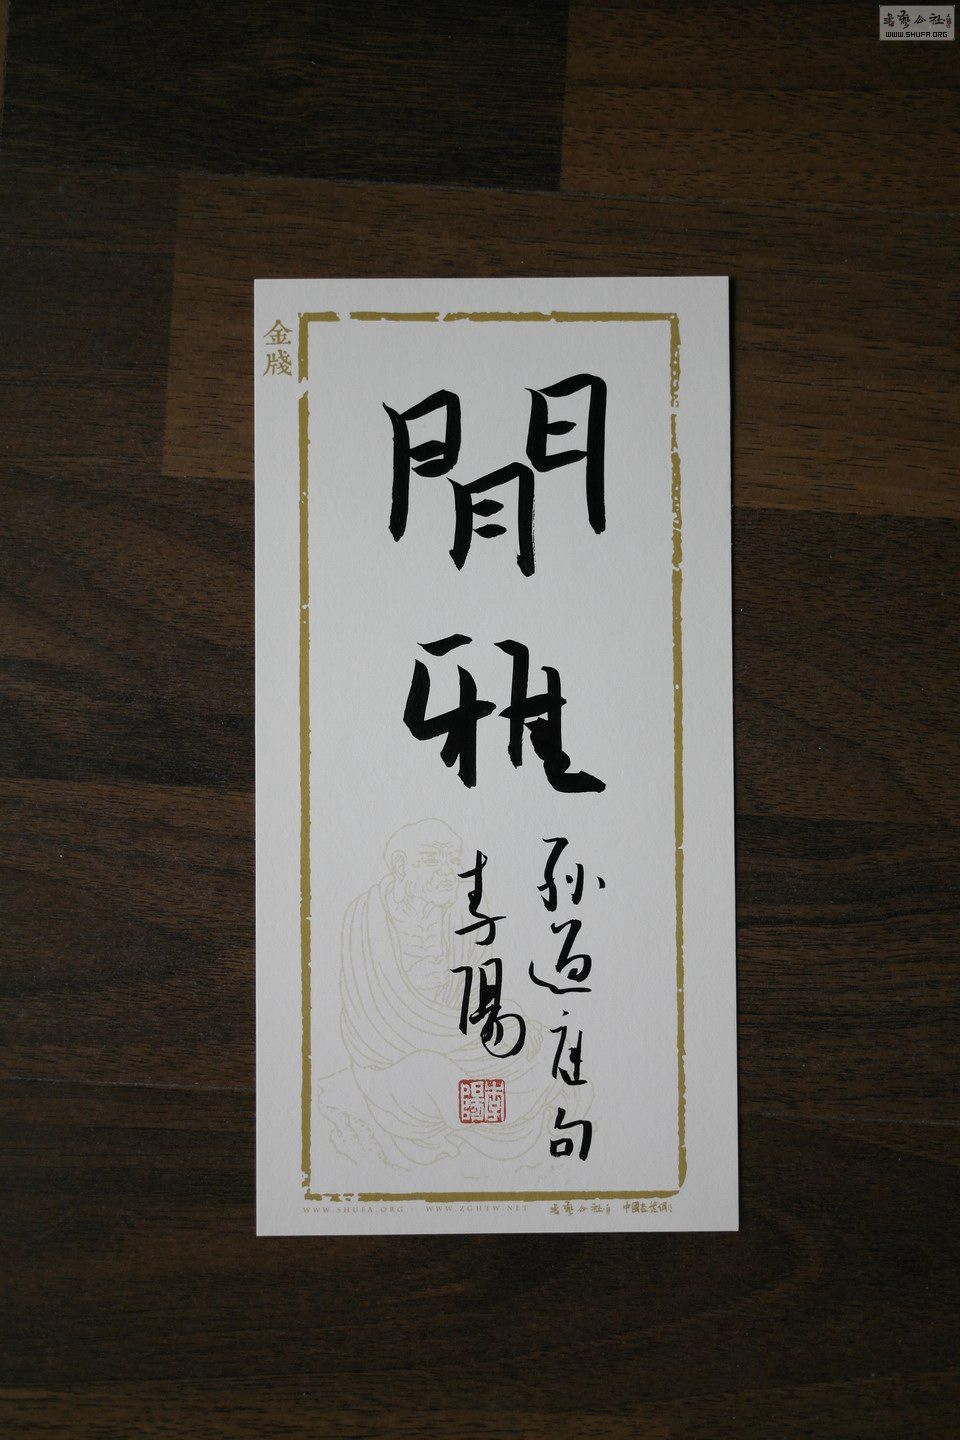 書藝公社
WWW.SHUFA.ORG
金牋
閒雅
孫過庭句
李陽
李陽
WWW.SHUFA.ORG
WWW.ZGHTW.NET
書藝公社